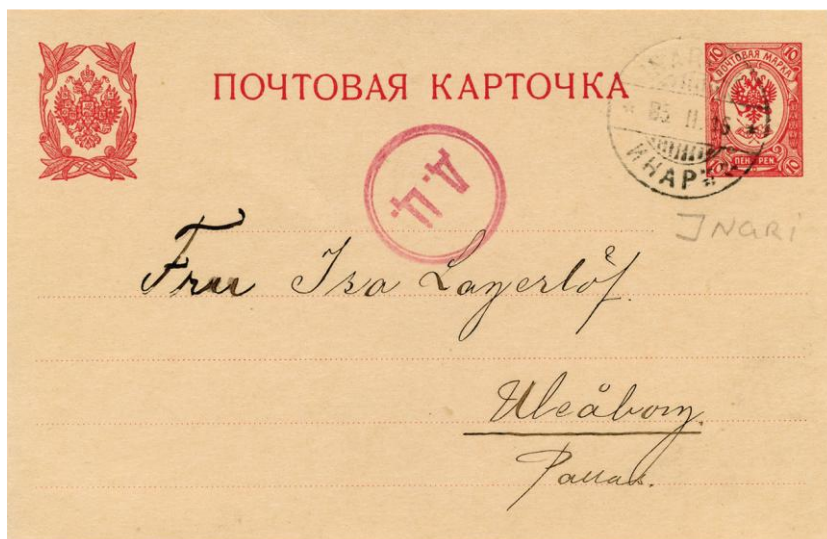 ПОЧТОВАЯ КАРТОЧКА
10 ПОЧТОВАЯ МАРКА 10
10 ПЕН. PEN. 10
INARI
ИНАРИ
Д.Ц.
INARI
Fru Isa Lagerlöf.
Uleåborg.